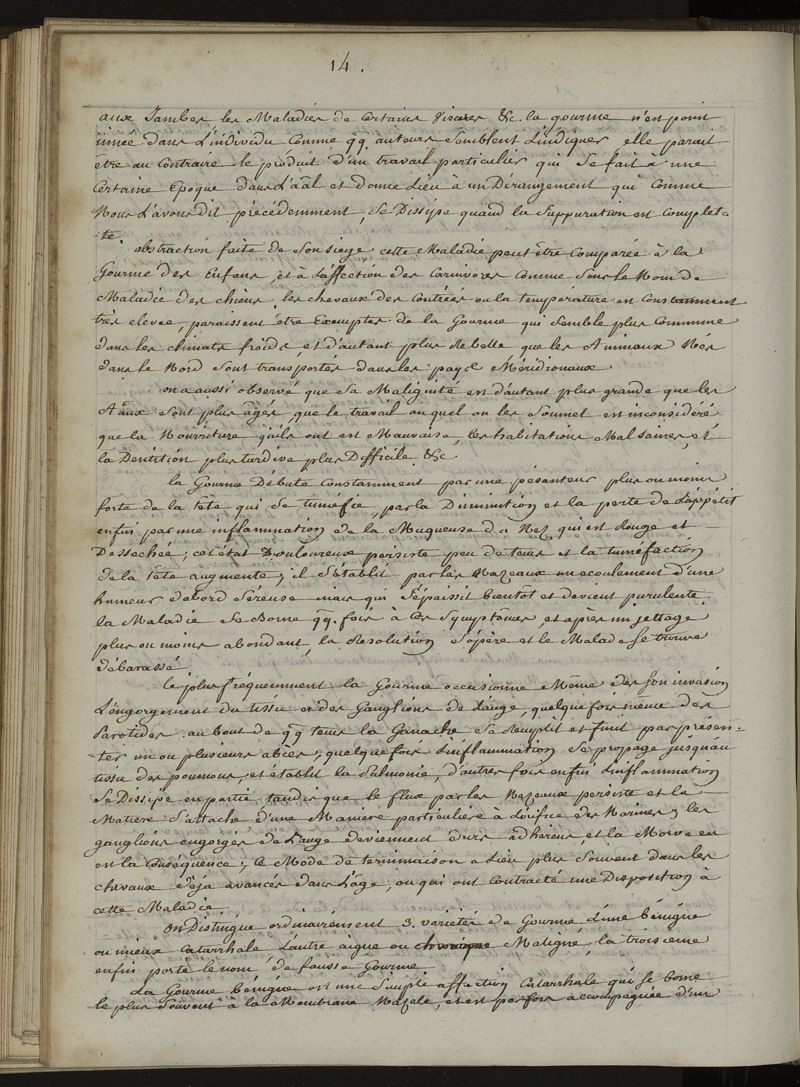 14.
aux Jambes les Maladies de Certains Visceres &c. la gourme n'est point
innée dans L'individu Comme qq. auteurs Semblent L'indiquer, elle parait
être au Contraire le produit d'un travail particulier qui Se fait à une
Certaine Epoque dans L'aâl et donne Lieu à un Dérangement qui Comme
Nous L'avons dit précédemment, Se Dissipe quand la Suppuration est complet-
te.
abstraction faite de Son siege cette Maladie peut être Comparée à la
Gourme des Enfans, et à L'affection des Carnivores Connue Sous le Nom de
Maladie des chiens. les chevaux des Contrées ou la température est Constamment
très elevée, paraissent être Exemptes de la Gourme qui Semble plus Commune
dans les climats froids, et d'autant plus Rebelle que les Animaux Nés
dans le Nord Sont transportés dans les pays Méridionaux.
on a aussi observé que Sa Malignité est d'autant plus grande que les
Aâaux Sont plus âgés, que le travail au quel on les Soumet est inconsidéré
que la Nourriture qu'ils ont est Mauvaise, les habitations Mal Saines, et
la Dentition plus turdive plus Difficile &c.
la Gourme Débute Constamment par une pésanteur plus ou moins
forte de la tête qui Se tuméfie, par la Diminution et la perte de L'appétit
enfin par une inflammation de la Muqueuse du Nez qui est Rouge et
Dessechée; cet état Douloureux persiste peu de tems et la tuméfaction
de la tête augmente; il S'établit par les Nazeaux un écoulement d'une
humeur d'abord Séreuse mais qui S'épaissit bientôt et devient purulente.
la Maladie Se Borne qq. fois à ces Symptômes, et après un jettage
plus ou moins abondant, la Résolution S'opère et le Malade Se trouve
débarassé.
le plus fréquemment la Gourme occasionne Même dès Son invasion
L'engorgement du tissu et des Ganglions de L'auge, quelque fois même des
Parotides. au bout de qq. tems la Ganache Se Remplit et finit par présen-
-ter un ou plusieurs abcès; quelque fois L'inflammation Se propage jusqu'au
tissu des poumons, et établit la Pulmonie, d'autres fois enfin L'inflammation
Se Dissipe en partie tandis que le flux par les Nazeaux persiste et la
Matiere S'attache d'une Maniere particulière à L'orifice des Narines; les
ganglions engorgés de L'auge deviennent durs adhérens, et la Morve en
est la Conséquence; Ce Mode de terminaison a Lieu plus Souvent dans les
chevaux déja avancés dans L'âge, ou qui ont Contracté une Disposition à
cette Maladie.
on Distingue ordinairement 3. variétés de Gourme L'une bénigne
ou mieux Catarrhale L'autre aigue ou chronique Maligne, la troisieme
enfin porte le nom de fausse Gourme.
La Gourme bénigne est une Simple affection Catarrhale qui Se borne
le plus Souvent à la Membrane Nazale, et est par fois accompagnée d'un